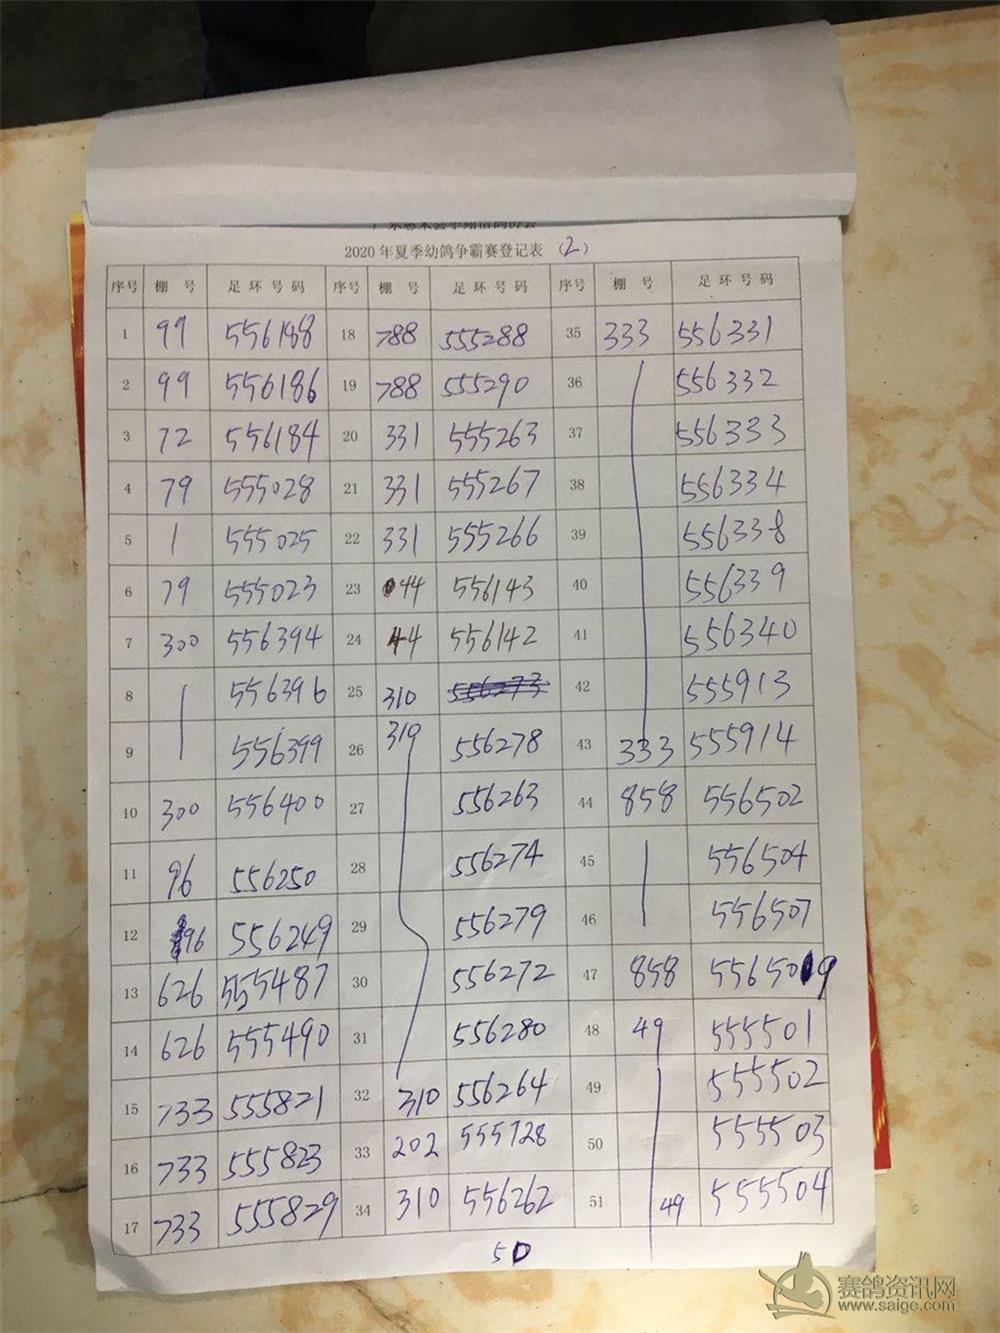 2020年夏季幼鸽争霸赛登记表(2)
序号 棚号 足环号码 序号 棚号 足环号码 序号 棚号 足环号码
1 99 556188 18 788 555288 35 333 556331
2 99 556186 19 788 555290 36 556332
3 72 556184 20 331 555263 37 556333
4 79 555028 21 331 555267 38 556334
5 1 555025 22 331 555266 39 556338
6 79 555023 23 044 556143 40 556339
7 300 556394 24 44 556142 41 556340
8 556396 25 310 556273 42 555913
9 556399 26 310 556278 43 333 555914
10 300 556400 27 556263 44 858 556502
11 96 556250 28 556274 45 556504
12 96 556249 29 556279 46 556507
13 626 555487 30 556272 47 858
14 626 555490 31 556280 48 49 555501
15 733 555821 32 310 556264 49 555502
16 733 555823 33 202 555728 50 555503
17 733 555829 34 310 556262 51 49 555504
50
赛鸽资讯网
www.saige.com